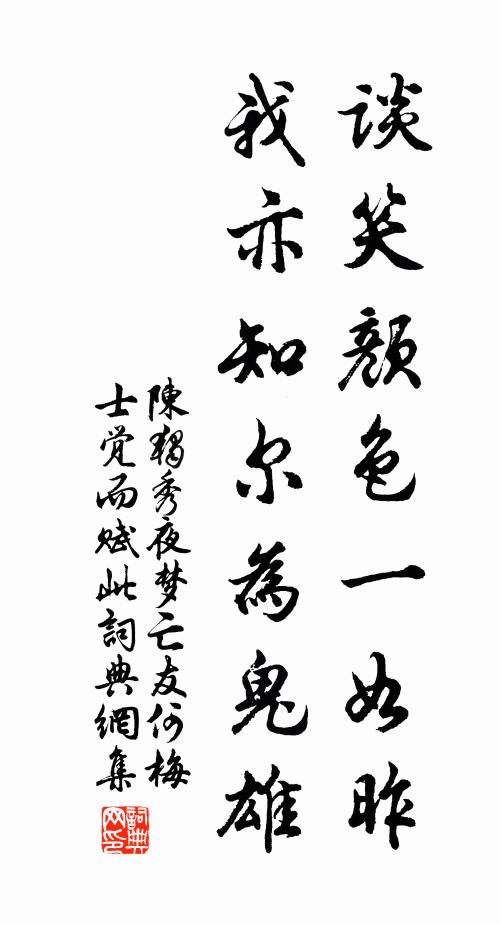 谈笑颜色一如昨
我亦知尔为鬼雄
陳獨秀夜梦亡友何梅
士觉而赋此詞典網集
詞典
网印